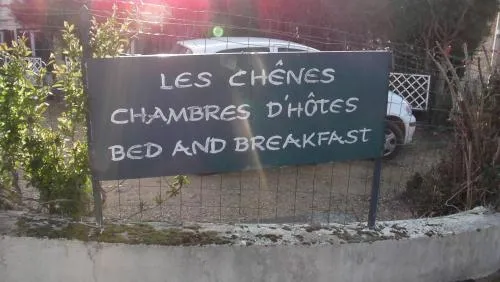 LES CHÊNES
CHAMBRES D'HÔTES
BED AND BREAKFAST